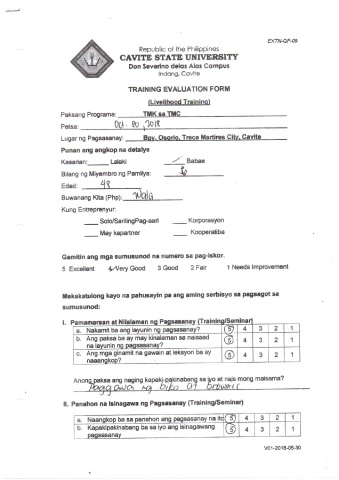 EXTN-QF-09
Republic of the Philippines
CAVITE STATE UNIVERSITY
Don Severino delas Alas Campus
Indang, Cavite
TRAINING EVALUATION FORM
(Livelihood Training)
Paksang Programa: TMK sa TMC
Petsa: Oct. 20, 2018
Lugar ng Pagsasanay: Bgy. Osorio, Trece Martires City, Cavite
Punan ang angkop na detalye
Kasarian: Lalaki Babae
Bilang ng Miyembro ng Pamilya:
Edad: 48
Buwanang Kita (Php): Wala
Kung Entreprenyur:
Solo/SarilingPag-aari Korporasyon
May kapartner Kooperatiba
Gamitin ang mga sumusunod na numero sa pag-iskor.
5 Excellent 4 Very Good 3 Good 2 Fair 1 Needs Improvement
Makakatulong kayo na pahusayin pa ang aming serbisyo sa pagsagot sa
sumusunod:
I. Pamamaraan at Nilalaman ng Pagsasanay (Training/Seminar)
a. Nakamit ba ang layunin ng pagsasanay? 5 4 3 2 1
b. Ang paksa ba ay may kinalaman sa naisaad
na layunin ng pagsasanay? 5 4 3 2 1
c. Ang mga ginamit na gawain at leksyon ba ay
naaangkop? 5 4 3 2 1
Anong paksa ang naging kapaki-pakinabang sa iyo at nais mong maisama?
Paggawa ng Biko at brownie
II. Panahon na Isinagawa ng Pagsasanay (Training/Seminar)
a. Naangkop ba sa panahon ang pagsasanay na ito 5 4 3 2 1
b. Kapakipakinabang ba sa iyo ang isinagawang
pagsasanay 5 4 3 2 1
V01-2018-05-30